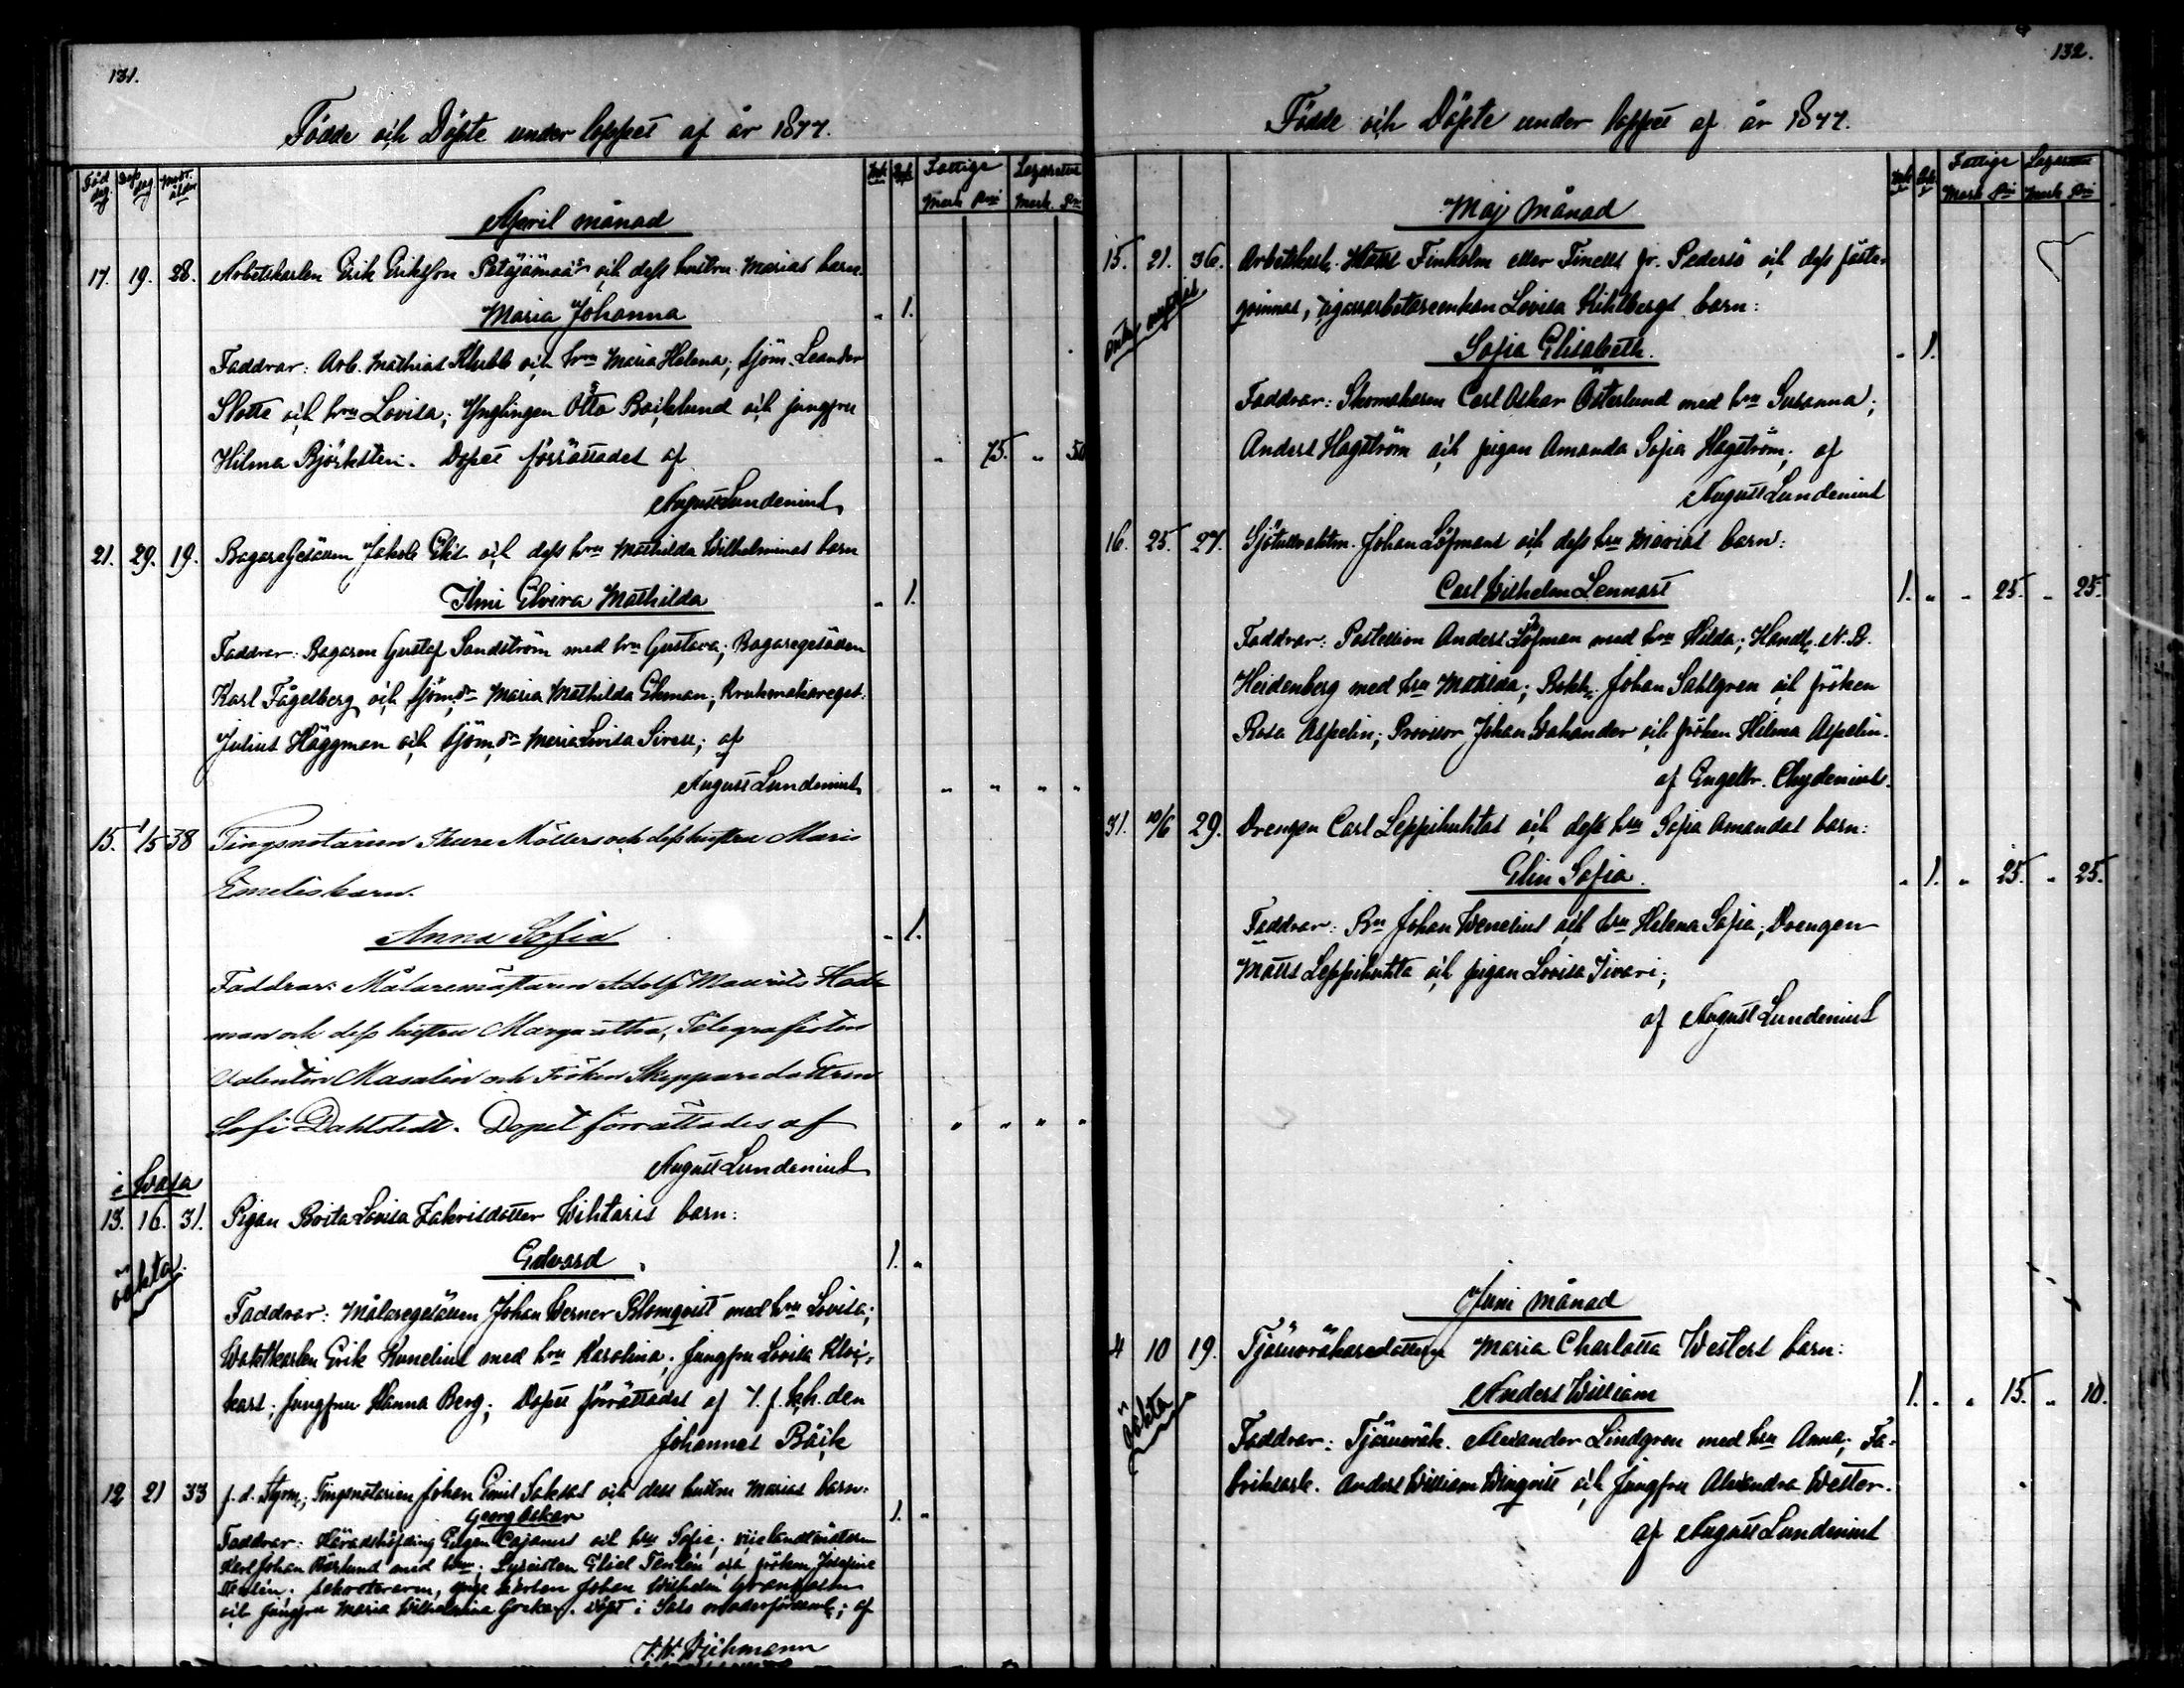 131.
Födde och Döpte under loppet af år 1877.
Föd. dag. Döp. dag. Modr. ålder Mk Qk Fattige Lazarettet
Mark Pni Mark. Pni
April månad
17. 19. 28. Arbetskarlen Erik Eriksson och dess hustru Marias barn
Maria Johanna " 1.
Faddrar: Arb. Mathias Klubb och hru Maria Helena; Sjöm. Leander
Slotte och hru Lovisa; Ynglingen Otto Backlund och jungfru
Hilma Björksten. Dopet förrättades af " 75. " 50
August Lundenius
21. 29. 19. Bagaregesällen Jakob och dess hru Mathilda Wilhelminas barn
Ilmi Elvira Mathilda " 1.
Faddrar: Bagaren Gustaf Sandström med hru Gustava; Bagaregesällen
Karl Fågelberg och sjöm. dr Maria Mathilda Ekman; Krukmakareges.
Julius Häggman och sjöm. dr Maria Lovisa Sirell; af
August Lundenius " " " "
15. 1/5 38 Tingsnotarien Thure Möllers och dess hustru Maria
Emelies barn.
Anna Sofia " 1.
Faddrar: Målaremästaren Adolf Maurits Hed-
man och dess hustru Margaretha, Telegrafisten
Valentin Masalin och Fröken Skepparedottren
Sofi Dahlstedt. Dopet förrättades af " " " "
August Lundenius
i Wasa
13. 16. 31. Pigan Brita Lovisa Zakrisdotter Wihtaris barn:
oäkta. Edvard 1. "
Faddrar: Målaregesällen Johan Werner Blomqvist med hru Lovisa;
Waktkarlen Erik Kunelius med hru Karolina; Jungfru Lovisa
Jungfru Hanna Berg; Dopet förrättades af
Johannes Bäck
12 21 33 f. d. Tingsnotarien Johan Emil Sakses och dess hustru Marias barn:
Georg Oskar 1. "
Faddrar: Häradshöfding Eugen Cajanus och hru Sofia; vicelandtmäteren
Karl Johan med hru; Lyceisten Eliel Tenlén och fröken Josefine
Tenlén; Johan Wilhelm
och Jungfru Maria Wilhelmina Döpt i Salo moderförsaml.; af
Wichmann
132.
Födde och Döpte under loppet af år 1877.
Mk Qk Fattige Lazarettet
Mark Pni Mark Pni
Maj månad
15. 21. 36. Arbetskarl. Matts Finholm eller Finells fr. Pedersö och dess fäste-
qvinnas, cigarrarbetareenkan Lovisa Kihlbergs barn:
Sofia Elisabeth. " 1.
Faddrar: Skomakaren Carl Oskar Österlund med hru Susanna;
Anders Hagström och pigan Amanda Sofia Hagström; af
August Lundenius
16. 25. 27. Sjötullvaktm. Johan Löfmans och dess hru Marias barn:
Carl Wilhelm Lennart 1. " " 25. " 25.
Faddrar: Postillion Anders Löfman med hru Hilda; Handl. N. B.
Heidenberg med hru Matilda; Bokh. Johan Sahlgren och fröken
Rosa Aspelin; Provisor Johan Wahander och fröken Hilma Aspelin.
af Engelbr. Chydenius.
31. 10/6 29. Drengen Carl Leppihuhtas och dess hru Sofia Amandas barn:
Elin Sofia. " 1. " 25. " 25.
Faddrar: Bn Johan Wenelius och hru Helena Sofia; Drengen
Matts Leppihuhta och pigan Lovisa Tivari;
af August Lundenius
Juni månad
4 10 19. Maria Charlotta Westers barn:
oäkta Anders William 1. " " 15. " 10.
Faddrar: Alexander Lindgren med hru Anna; Fa-
briksarb. Anders William Winqvist och Jungfru Alexandra Wester.
af August Lundenius